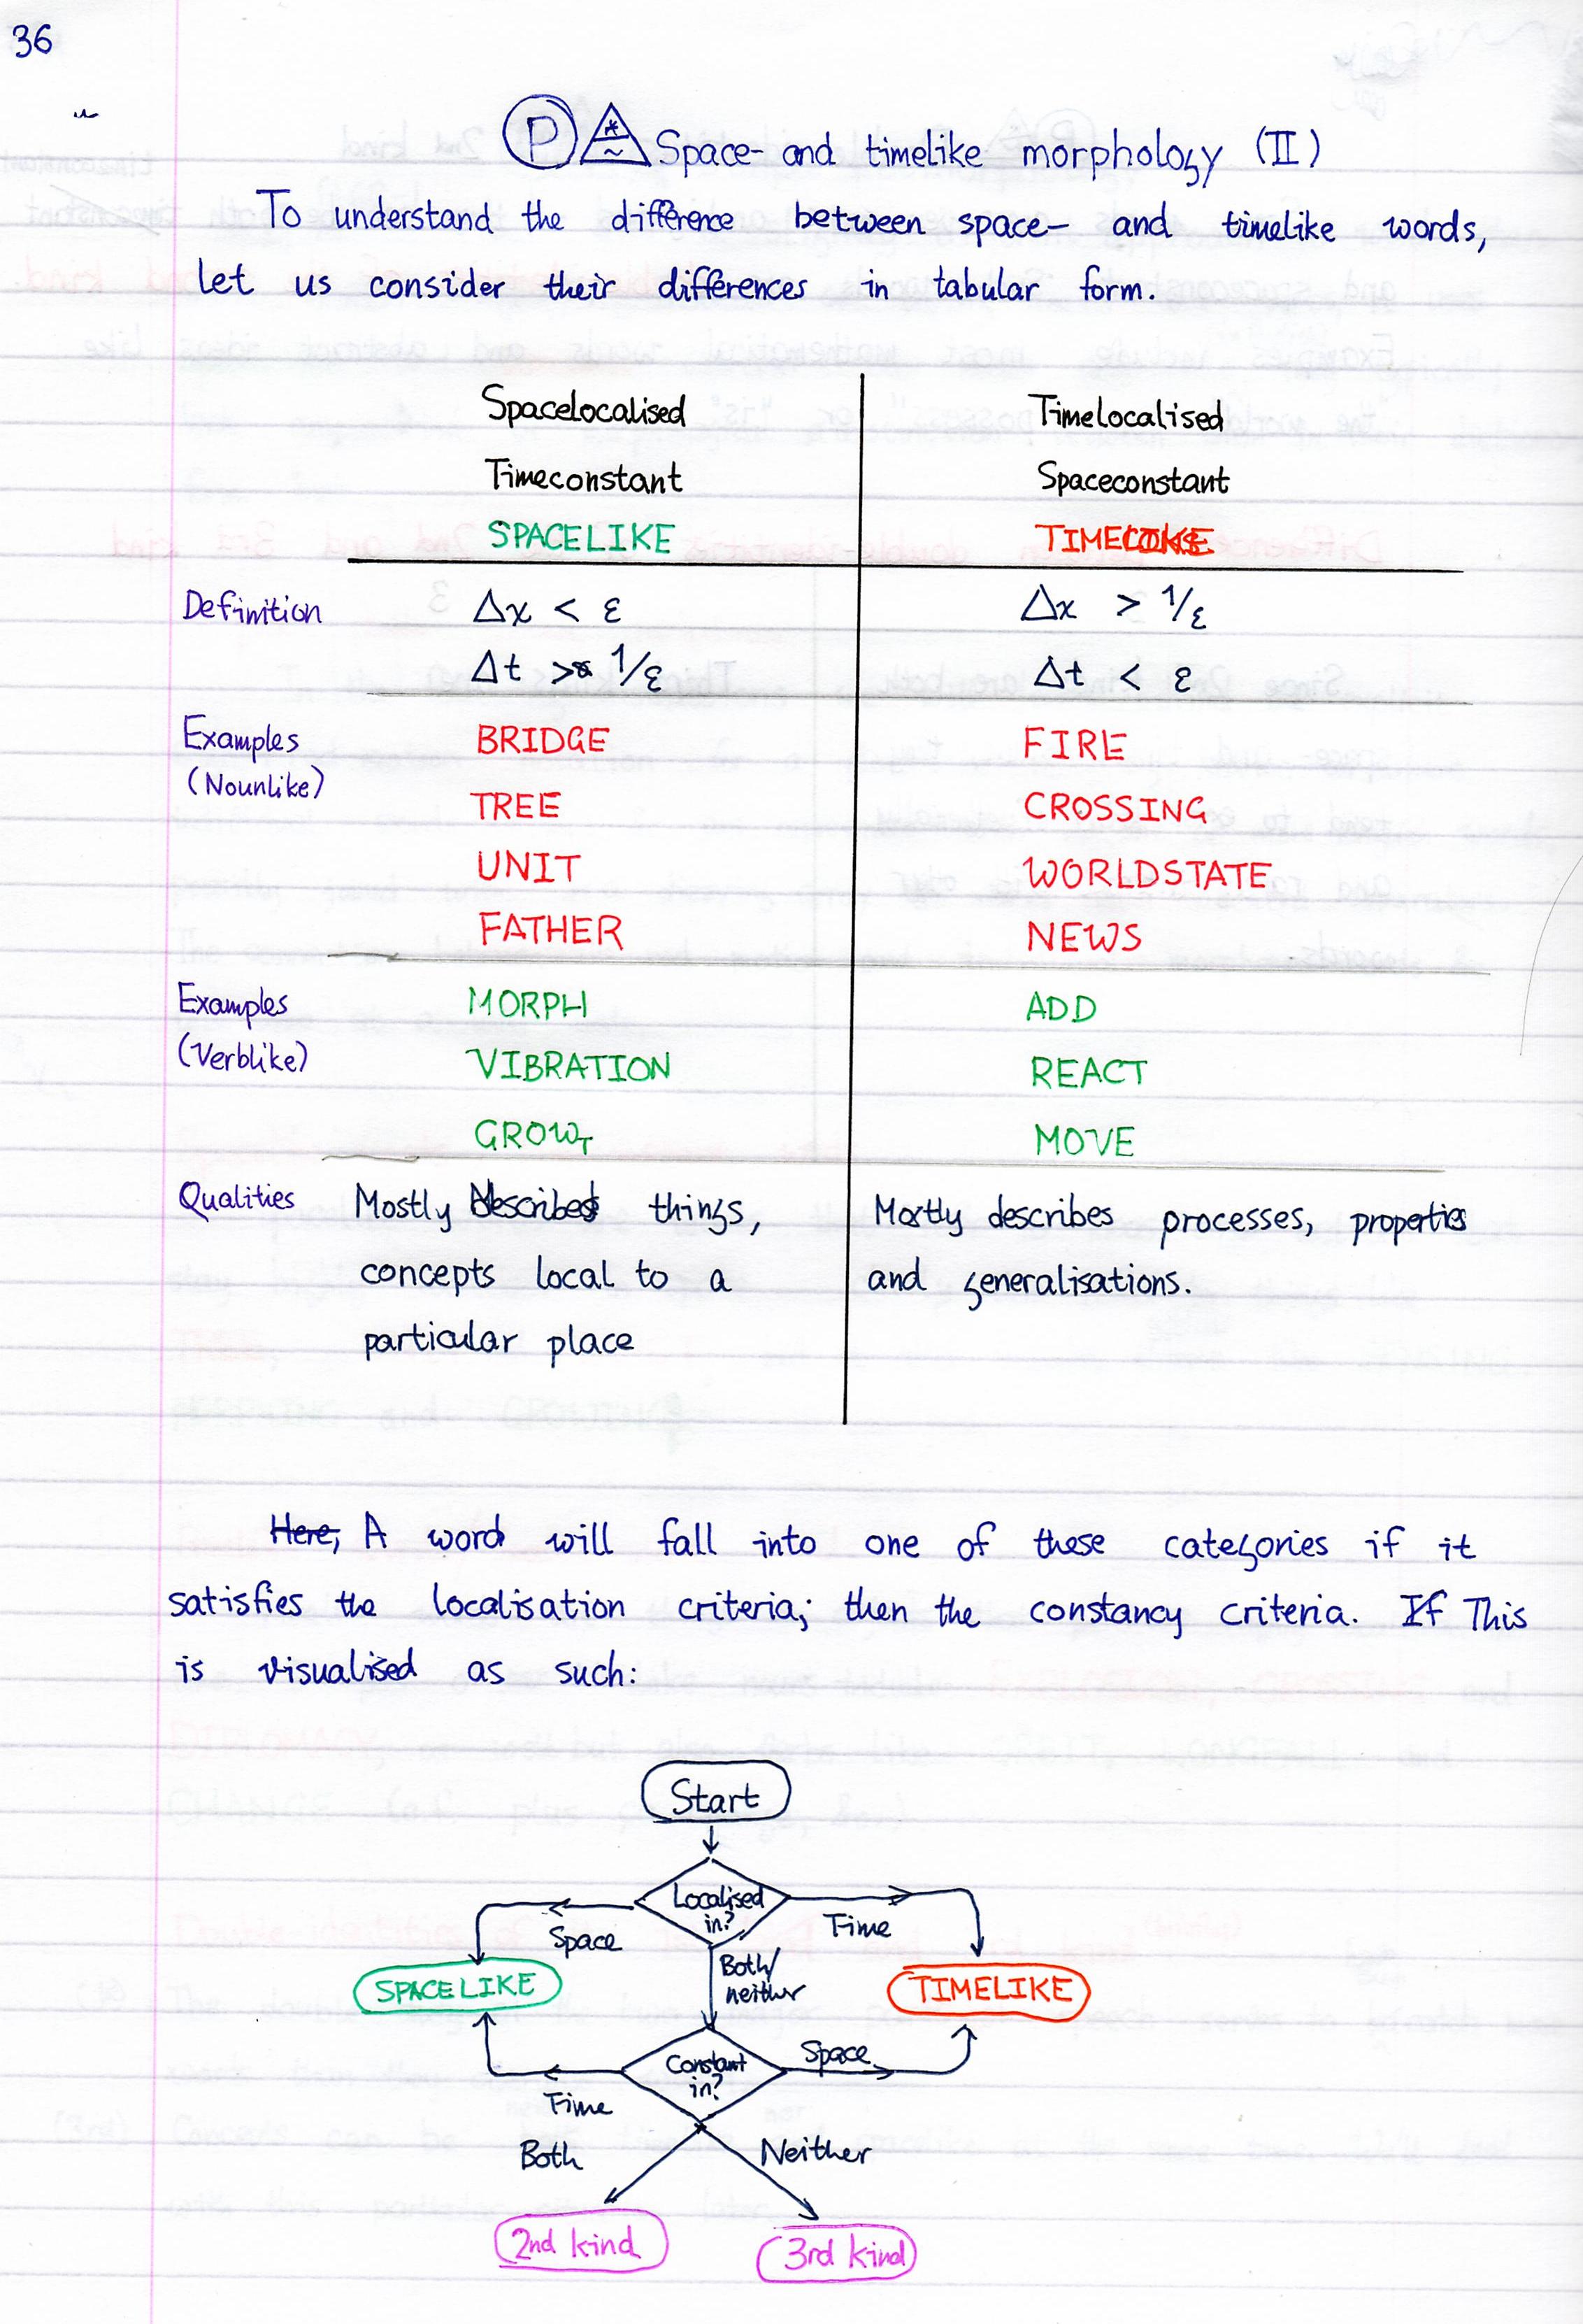 36
P * ~ Space- and timelike morphology (II)
To understand the difference between space- and timelike words,
let us consider their differences in tabular form.
Spacelocalised Timelocalised
Timeconstant Spaceconstant
SPACELIKE TIMELIKE
Definition Δx < ε Δx > 1/ε
Δt > 1/ε Δt < ε
Examples BRIDGE FIRE
(Nounlike)
TREE CROSSING
UNIT WORLDSTATE
FATHER NEWS
Examples MORPH ADD
(Verblike) VIBRATION REACT
GROW MOVE
Qualities Mostly describes things, Mostly describes processes, properties
concepts local to a and generalisations.
particular place
Here, A word will fall into one of these categories if it
satisfies the localisation criteria; then the constancy criteria. If This
is visualised as such:
Start
Localised
in?
Space
Time
Both/
neither
SPACELIKE
TIMELIKE
Constant
in?
Space
Time
Both
Neither
2nd kind
3rd kind